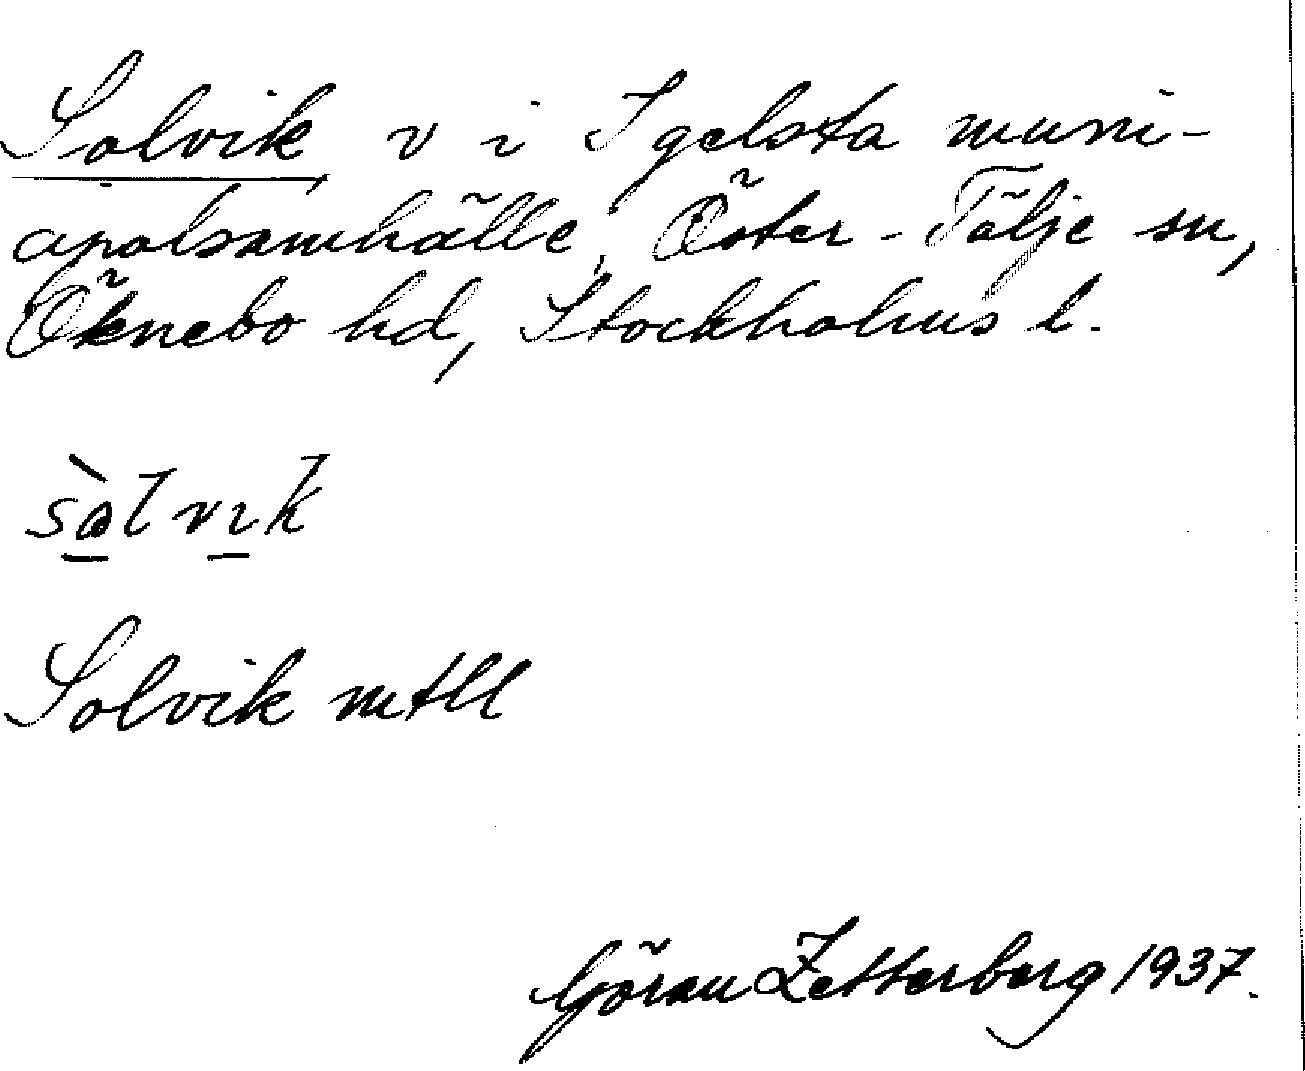 Solvik v i Igelsta muni-
cipalsamhälle, Öster-Tälje sn,
Öknebo hd, Stockholms l.
sòlvık
Solvik mtll
Göran Zetterberg 1937.